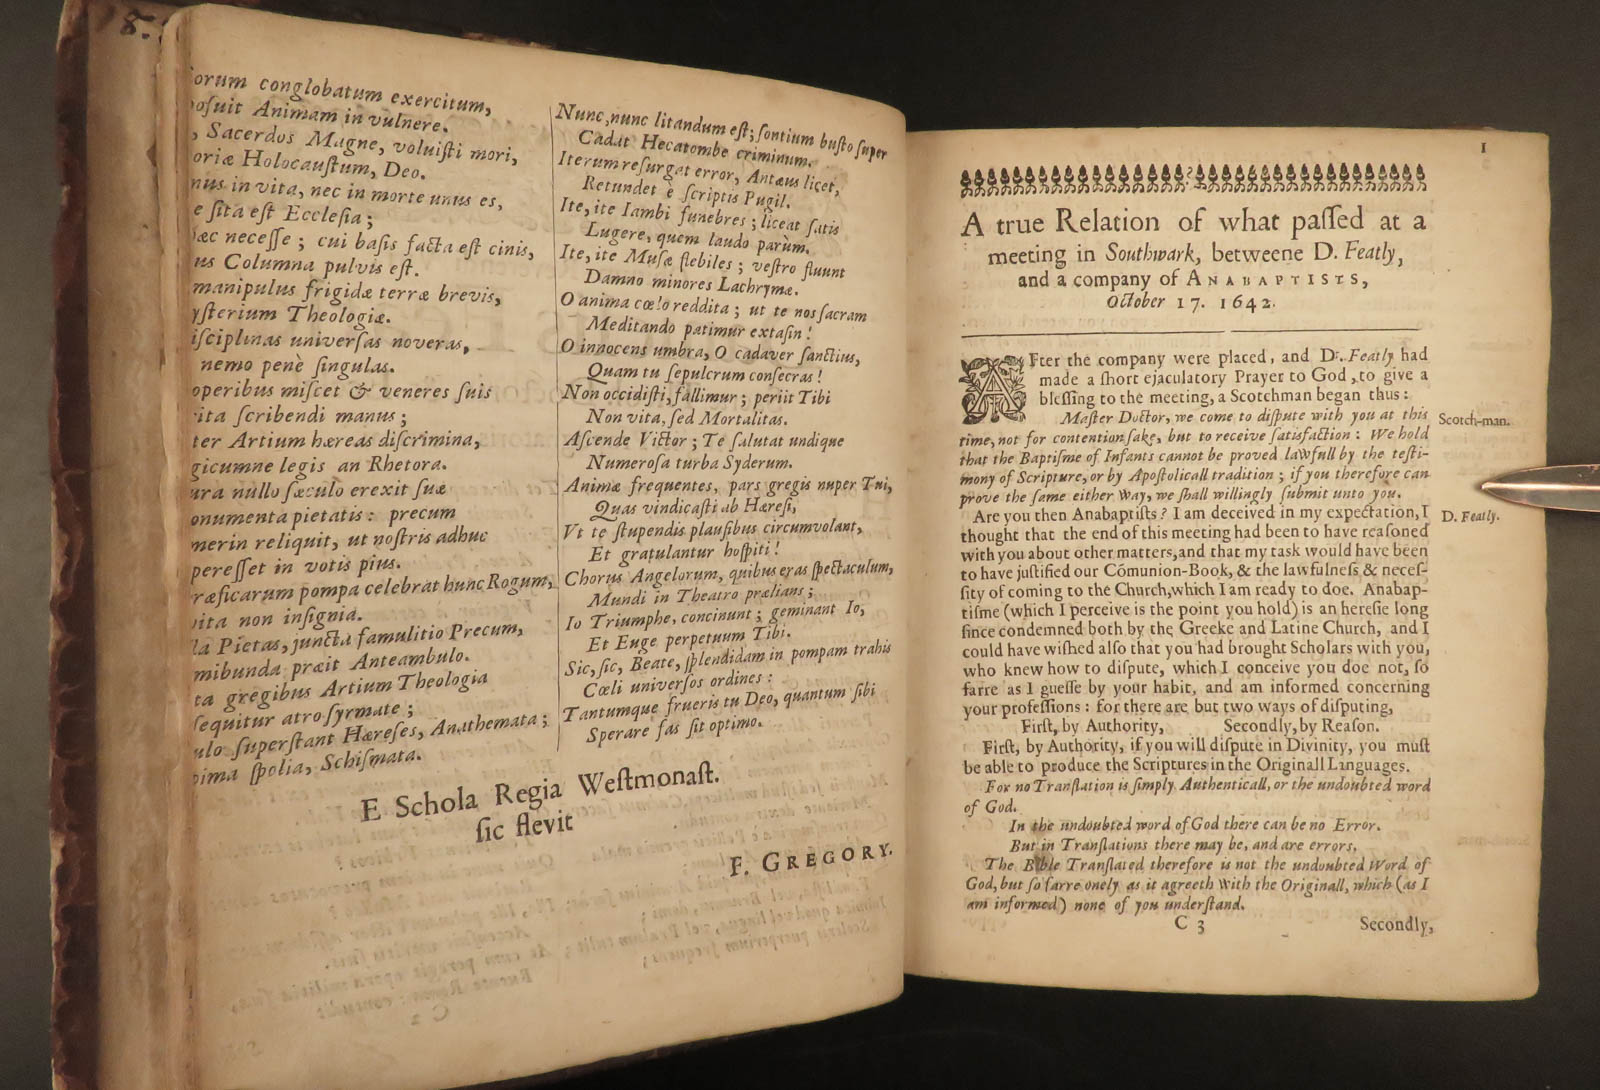 18.
orum conglobatum exercitum,
poſuit Animam in vulnere.
, Sacerdos Magne, voluiſti mori,
oriæ Holocauſtum, Deo.
nus in vita, nec in morte unus es,
e ſita eſt Eccleſia;
æc neceſſe; cui baſis facta eſt cinis,
us Columna pulvis eſt.
manipulus frigidæ terræ brevis,
yſterium Theologiæ.
iſciplinas univerſas noveras,
nemo penè ſingulas.
operibus miſcet & veneres ſuis
ita ſcribendi manus;
ter Artium hæreas diſcrimina,
gicumne legis an Rhetora.
ura nullo ſæculo erexit ſuæ
onumenta pietatis: precum
merin reliquit, ut noſtris adhuc
pereſſet in votis pius.
ræficarum pompa celebrat hunc Rogum,
vita non inſignia.
la Pietas, juncta famulitio Precum,
mibunda præit Anteambulo.
ta gregibus Artium Theologia
ſequitur atro ſyrmate;
ulo ſuperſtant Hæreſes, Anathemata;
pima ſpolia, Schiſmata.
Nunc, nunc litandum eſt; ſontium buſto ſuper
Cadat Hecatombe criminum.
Iterum reſurgat error, Antæus licet,
Retundet è ſcriptis Pugil.
Ite, ite Iambi funebres; liceat ſatis
Lugere, quem laudo parùm.
Ite, ite Muſæ flebiles; veſtro fluunt
Damno minores Lachrymæ.
O anima cœlo reddita; ut te nos ſacram
Meditando patimur extaſin!
O innocens umbra, O cadaver ſanctius,
Quam tu ſepulcrum conſecras!
Non occidiſti, fallimur; periit Tibi
Non vita, ſed Mortalitas.
Aſcende Victor; Te ſalutat undique
Numeroſa turba Syderum.
Animæ frequentes, pars gregis nuper Tui,
Quas vindicaſti ab Hæreſi,
Vt te ſtupendis plauſibus circumvolant,
Et gratulantur hoſpiti!
Chorus Angelorum, quibus eras ſpectaculum,
Mundi in Theatro prælians;
Io Triumphe, concinunt; geminant Io,
Et Euge perpetuum Tibi.
Sic, ſic, Beate, ſplendidam in pompam trahis
Cœli univerſos ordines:
Tantumque frueris tu Deo, quantum ſibi
Sperare fas ſit optimo.
E Schola Regia Weſtmonaſt.
ſic flevit
F. GREGORY.
1
A true Relation of what paſſed at a
meeting in Southwark, betweene D. Featly,
and a company of ANABAPTISTS,
October 17. 1642.
AFter the company were placed, and Dr. Featly had
made a ſhort ejaculatory Prayer to God, to give a
bleſſing to the meeting, a Scotchman began thus:
Maſter Doctor, we come to diſpute with you at this
Scotch-man.
time, not for contention ſake, but to receive ſatisfaction: We hold
that the Baptiſme of Infants cannot be proved lawfull by the teſti-
mony of Scripture, or by Apoſtolicall tradition; if you therefore can
prove the ſame either way, we ſhall willingly ſubmit unto you.
Are you then Anabaptiſts? I am deceived in my expectation, I
D. Featly.
thought that the end of this meeting had been to have reaſoned
with you about other matters, and that my task would have been
to have juſtified our Cõmunion-Book, & the lawfulneſs & neceſ-
ſity of coming to the Church, which I am ready to doe. Anabap-
tiſme (which I perceive is the point you hold) is an hereſie long
ſince condemned both by the Greeke and Latine Church, and I
could have wiſhed alſo that you had brought Scholars with you,
who knew how to diſpute, which I conceive you doe not, ſo
farre as I gueſſe by your habit, and am informed concerning
your profeſſions: for there are but two ways of diſputing,
Firſt, by Authority, Secondly, by Reaſon.
Firſt, by Authority, if you will diſpute in Divinity, you muſt
be able to produce the Scriptures in the Originall Languages.
For no Tranſlation is ſimply Authenticall, or the undoubted word
of God.
In the undoubted word of God there can be no Error.
But in Tranſlations there may be, and are errors.
The Bible Tranſlated therefore is not the undoubted Word of
God, but ſo farre onely as it agreeth with the Originall, which (as I
am informed) none of you underſtand.
C 3
Secondly,